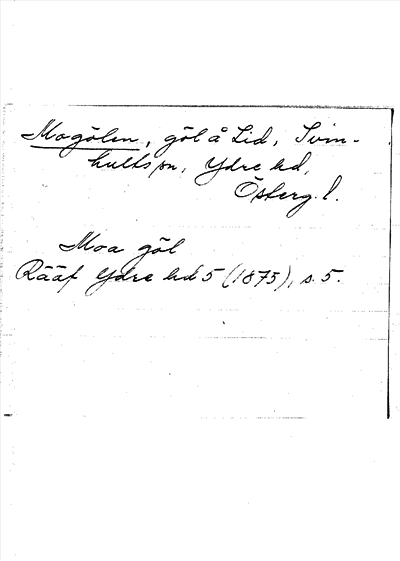 Mogölen, göl å Lid, Svin-
hults sn, Ydre hd,
Österg. l.
Moa göl
Rääf Ydre hd 5 (1875), s. 5.